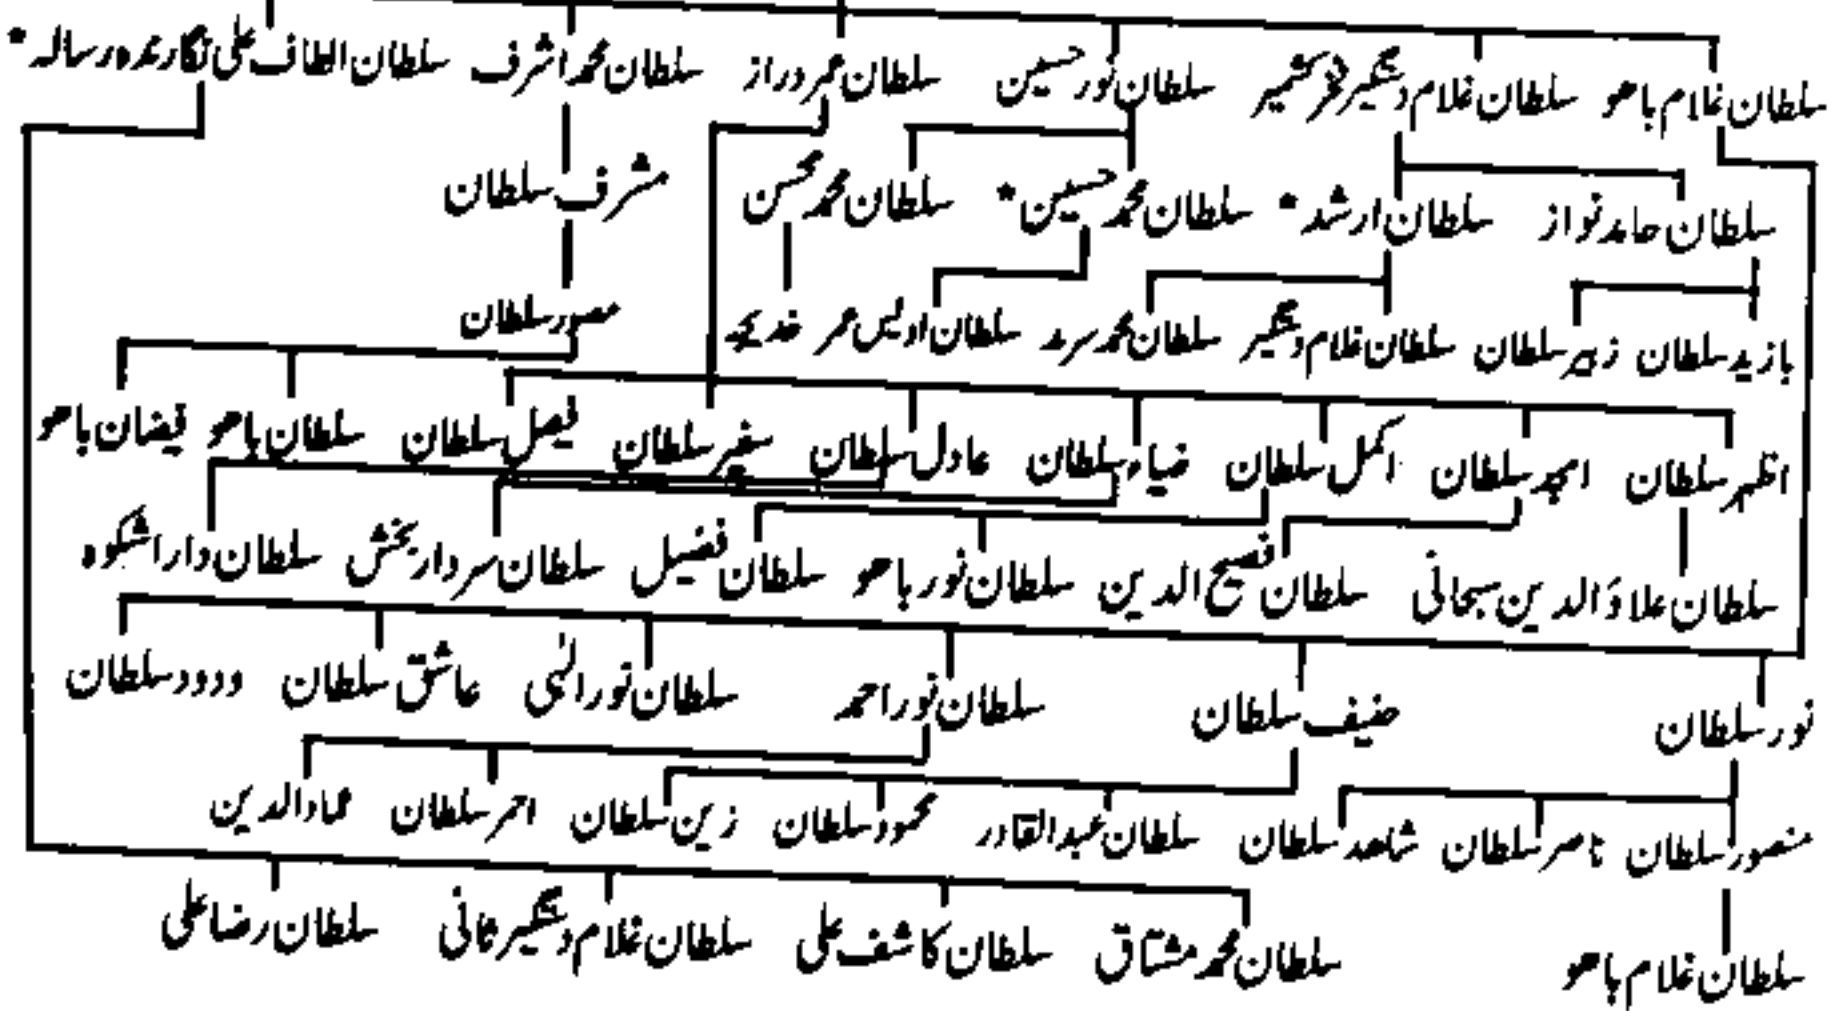 سلطان غلام باھو سلطان غلام دستگیر فخر کشمیر سلطان نور حسین سلطان عمر دراز سلطان محمد اشرف سلطان الطاف علی نگارندہ رسالہ *
سلطان حامد نواز سلطان ارشد * سلطان محمد حسین * سلطان محمد محسن مشرف سلطان
بازید سلطان زبیر سلطان سلطان غلام دستگیر سلطان محمد سرمد سلطان اویس عمر خدیجہ مصور سلطان
اظہر سلطان امجد سلطان اکمل سلطان ضیاء سلطان عادل سلطان سفیر سلطان فیصل سلطان سلطان باھو فیضان باھو
سلطان علاؤالدین سبحانی سلطان فصیح الدین سلطان نور باھو سلطان فضیل سلطان سردار بخش سلطان دارا شکوہ
نور سلطان حنیف سلطان سلطان نور احمد سلطان نور الٰہی عاشق سلطان ودود سلطان
منصور سلطان ناصر سلطان شاھد سلطان سلطان عبدالقادر محمود سلطان زین سلطان احمر سلطان عماد الدین
سلطان غلام باھو سلطان محمد مشتاق سلطان کاشف علی سلطان غلام دستگیر ثانی سلطان رضا علی